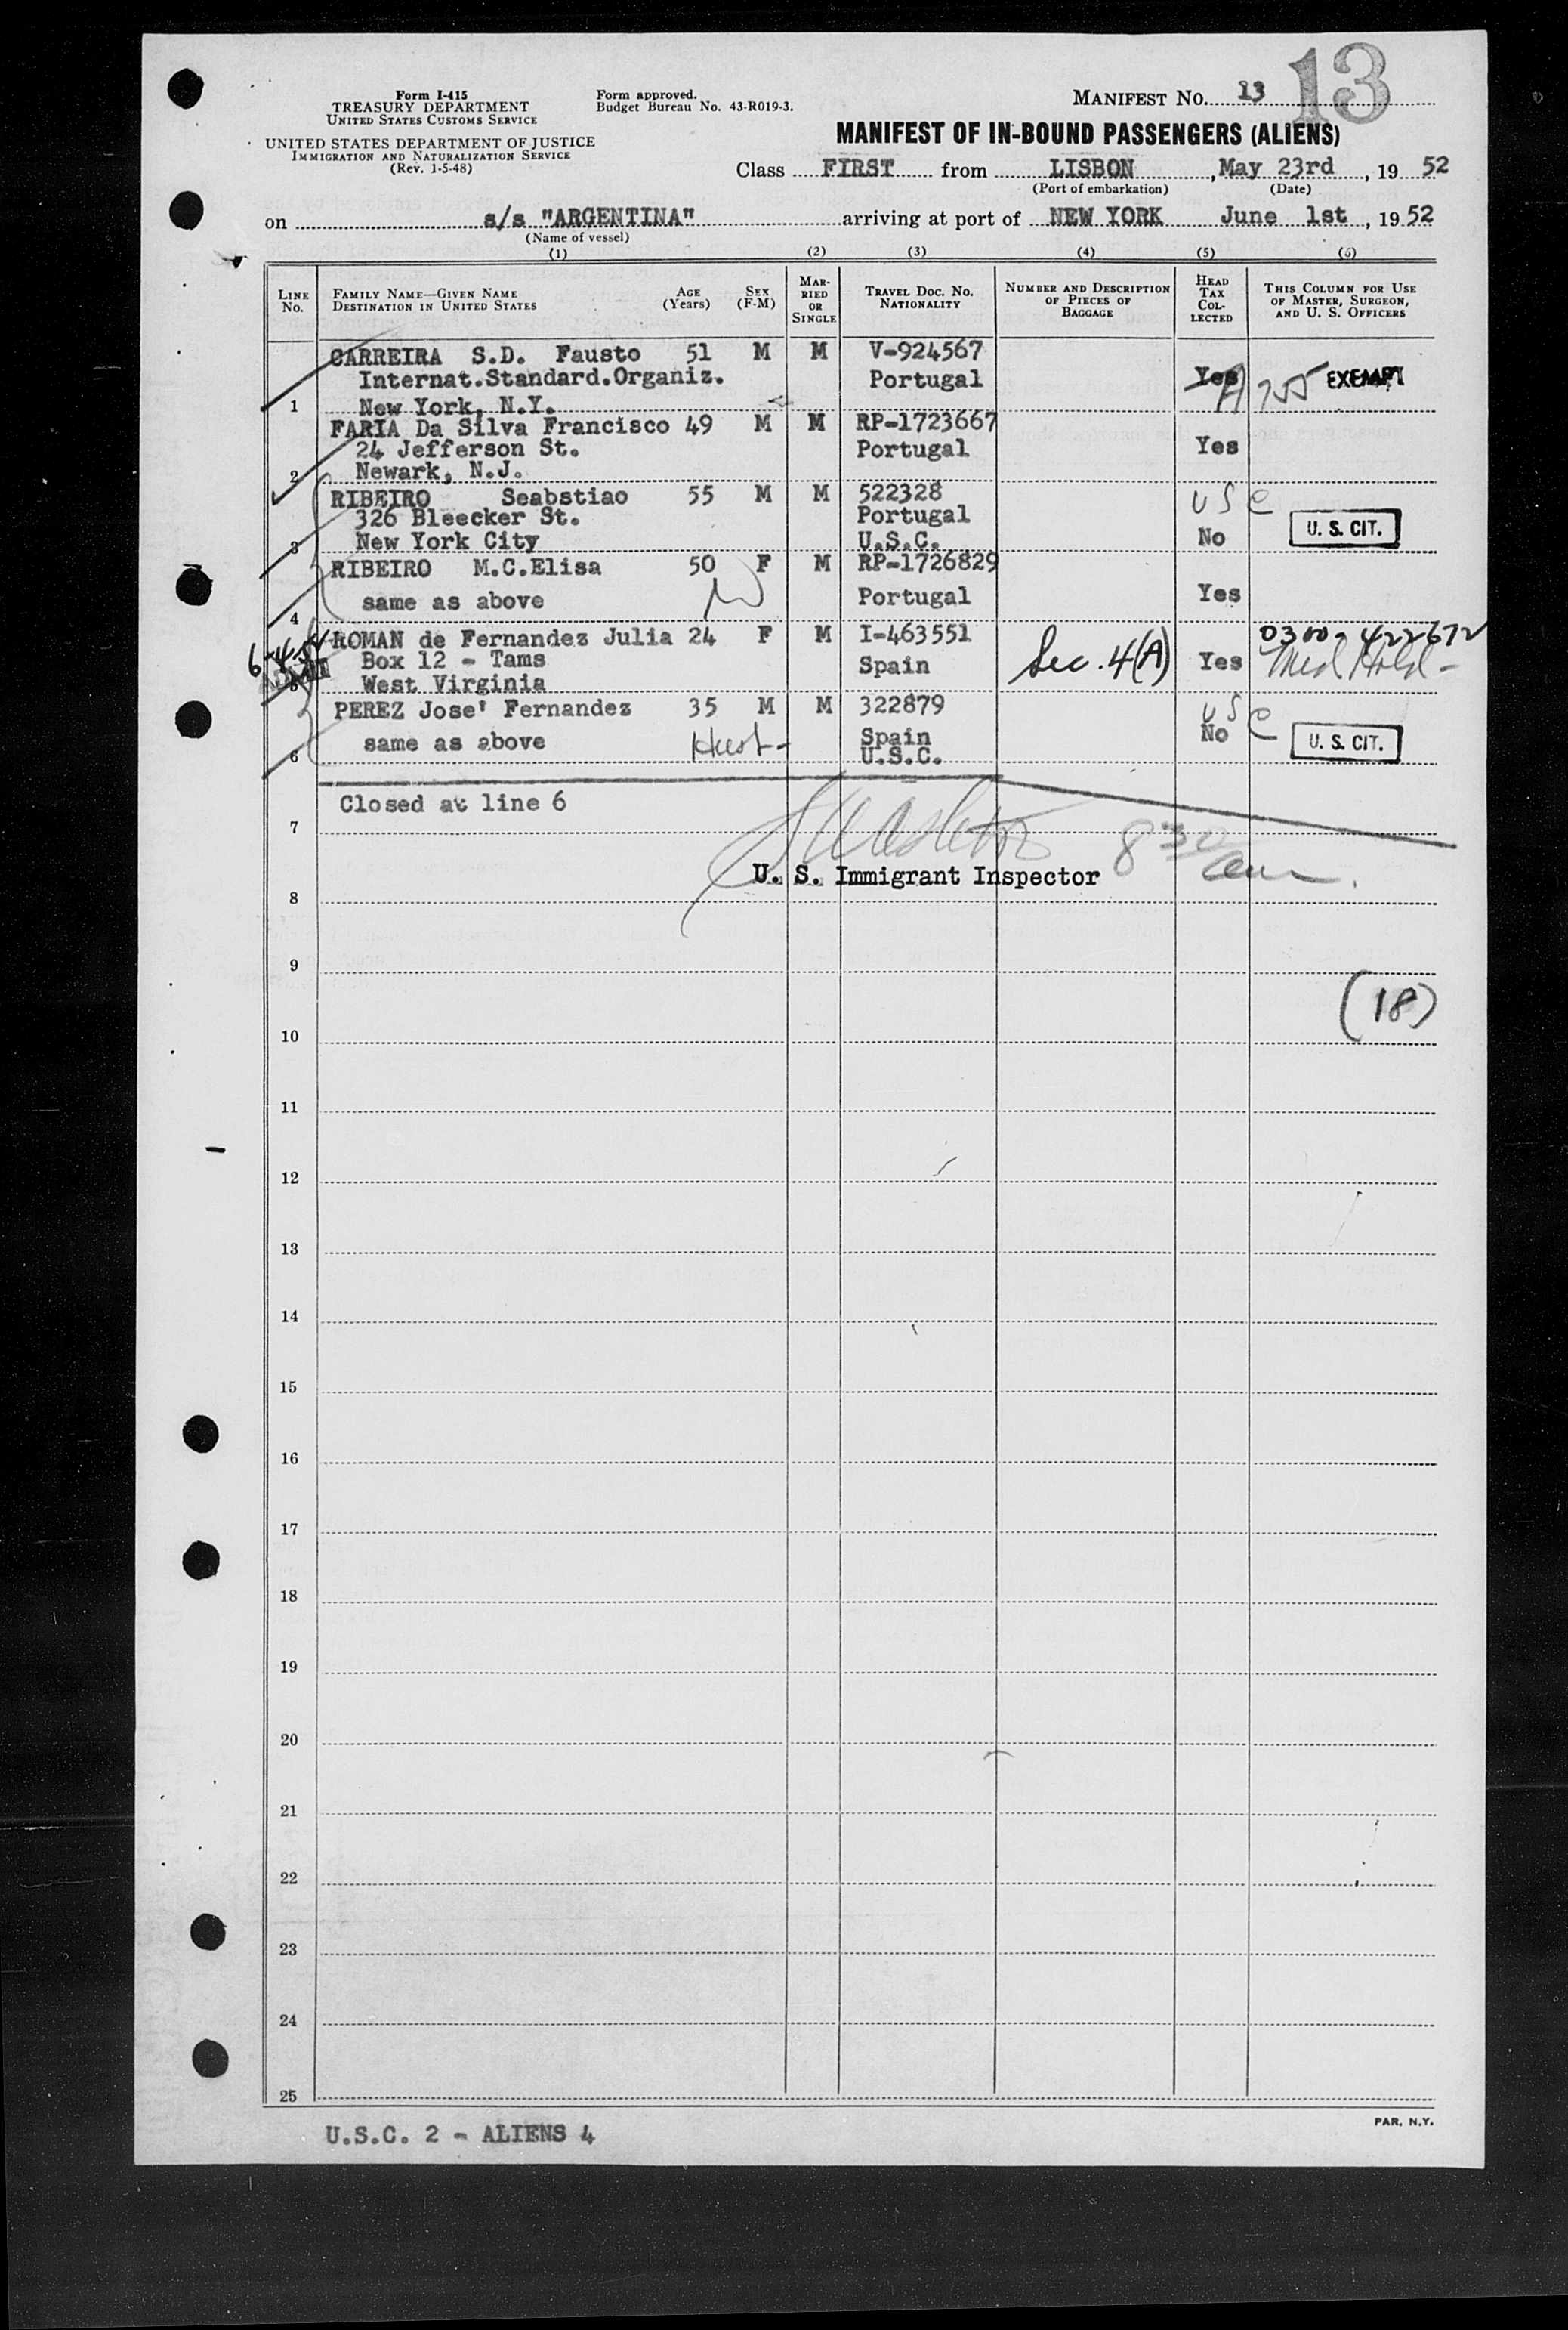 13
Form I-415
TREASURY DEPARTMENT
UNITED STATES CUSTOMS SERVICE
UNITED STATES DEPARTMENT OF JUSTICE
IMMIGRATION AND NATURALIZATION SERVICE
(Rev. 1-5-48)
Form approved.
Budget Bureau No. 43-R019-3.
MANIFEST NO. 13
MANIFEST OF IN-BOUND PASSENGERS (ALIENS)
Class FIRST from LISBON, May 23rd, 19 52
(Port of embarkation) (Date)
on s/s "ARGENTINA" arriving at port of NEW YORK June 1st, 19 52
(Name of vessel)
(1) (2) (3) (4) (5) (6)
LINE No. FAMILY NAME—GIVEN NAME DESTINATION IN UNITED STATES AGE (Years) SEX (F-M) MARRIED OR SINGLE TRAVEL DOC. NO. NATIONALITY NUMBER AND DESCRIPTION OF PIECES OF BAGGAGE HEAD TAX COLLECTED THIS COLUMN FOR USE OF MASTER, SURGEON, AND U. S. OFFICERS
CARREIRA S.D. Fausto 51 M M V-924567
Internat.Standard.Organiz. Portugal Yes EXEMPT
1 New York, N.Y.
FARIA Da Silva Francisco 49 M M RP-1723667
24 Jefferson St. Portugal Yes
2 Newark, N.J.
RIBEIRO Seabstiao 55 M M 522328 USC
326 Bleecker St. Portugal U. S. CIT.
3 New York City U.S.C. No
RIBEIRO M.C.Elisa 50 F M RP-1726829
same as above W Portugal Yes
4
ROMAN de Fernandez Julia 24 F M I-463551 0300-422672
Box 12 - Tams Spain Sec. 4(A) Yes Med Hold-
5 West Virginia
PEREZ Jose' Fernandez 35 M M 322879 USC
same as above Husb- Spain No U. S. CIT.
6 U.S.C.
Closed at line 6
7
U. S. Immigrant Inspector 8 30 am.
8
9
(18)
10
11
12
13
14
15
16
17
18
19
20
21
22
23
24
25
U.S.C. 2 - ALIENS 4
PAR, N.Y.